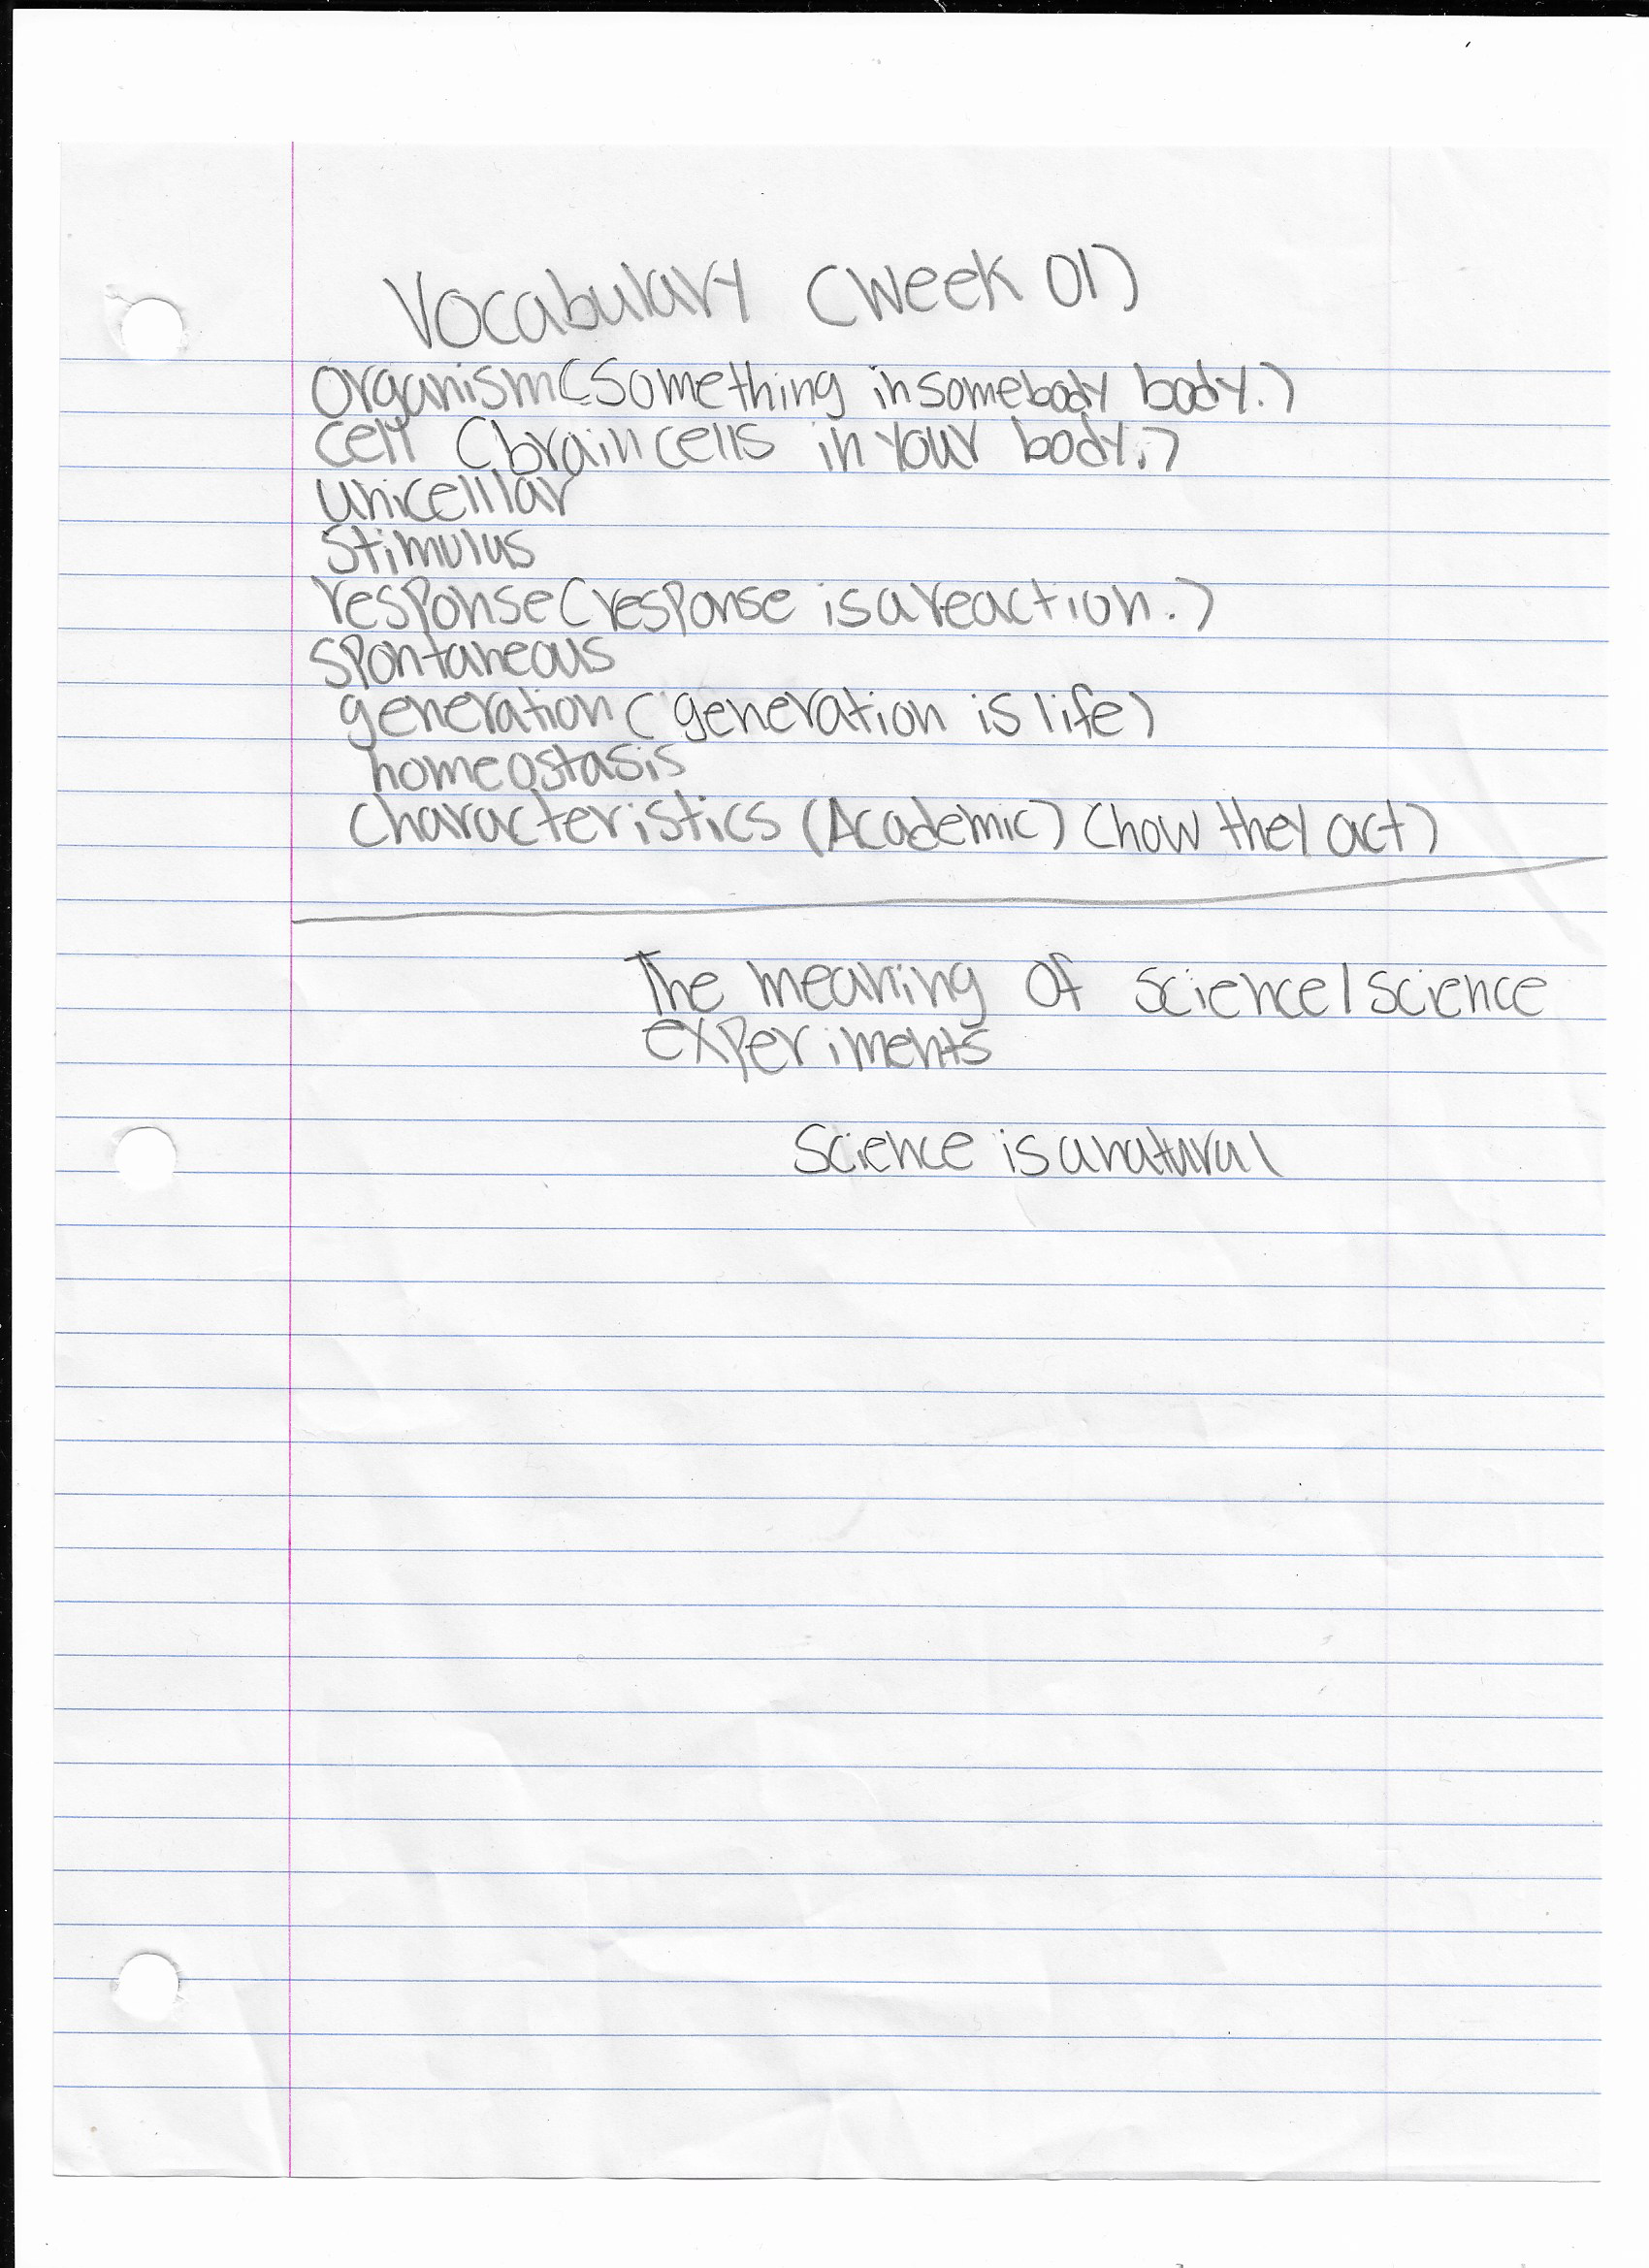 Vocabulary (Week 01)
Organism (Something in somebody body.)
Cell (brain cells in your body.)
Unicelllar
Stimulus
response (response is a reaction.)
Spontaneous
generation (generation is life)
homeostasis
Characteristics (Academic) (how they act)
The meaning of science / science
experiments
Science is a natural